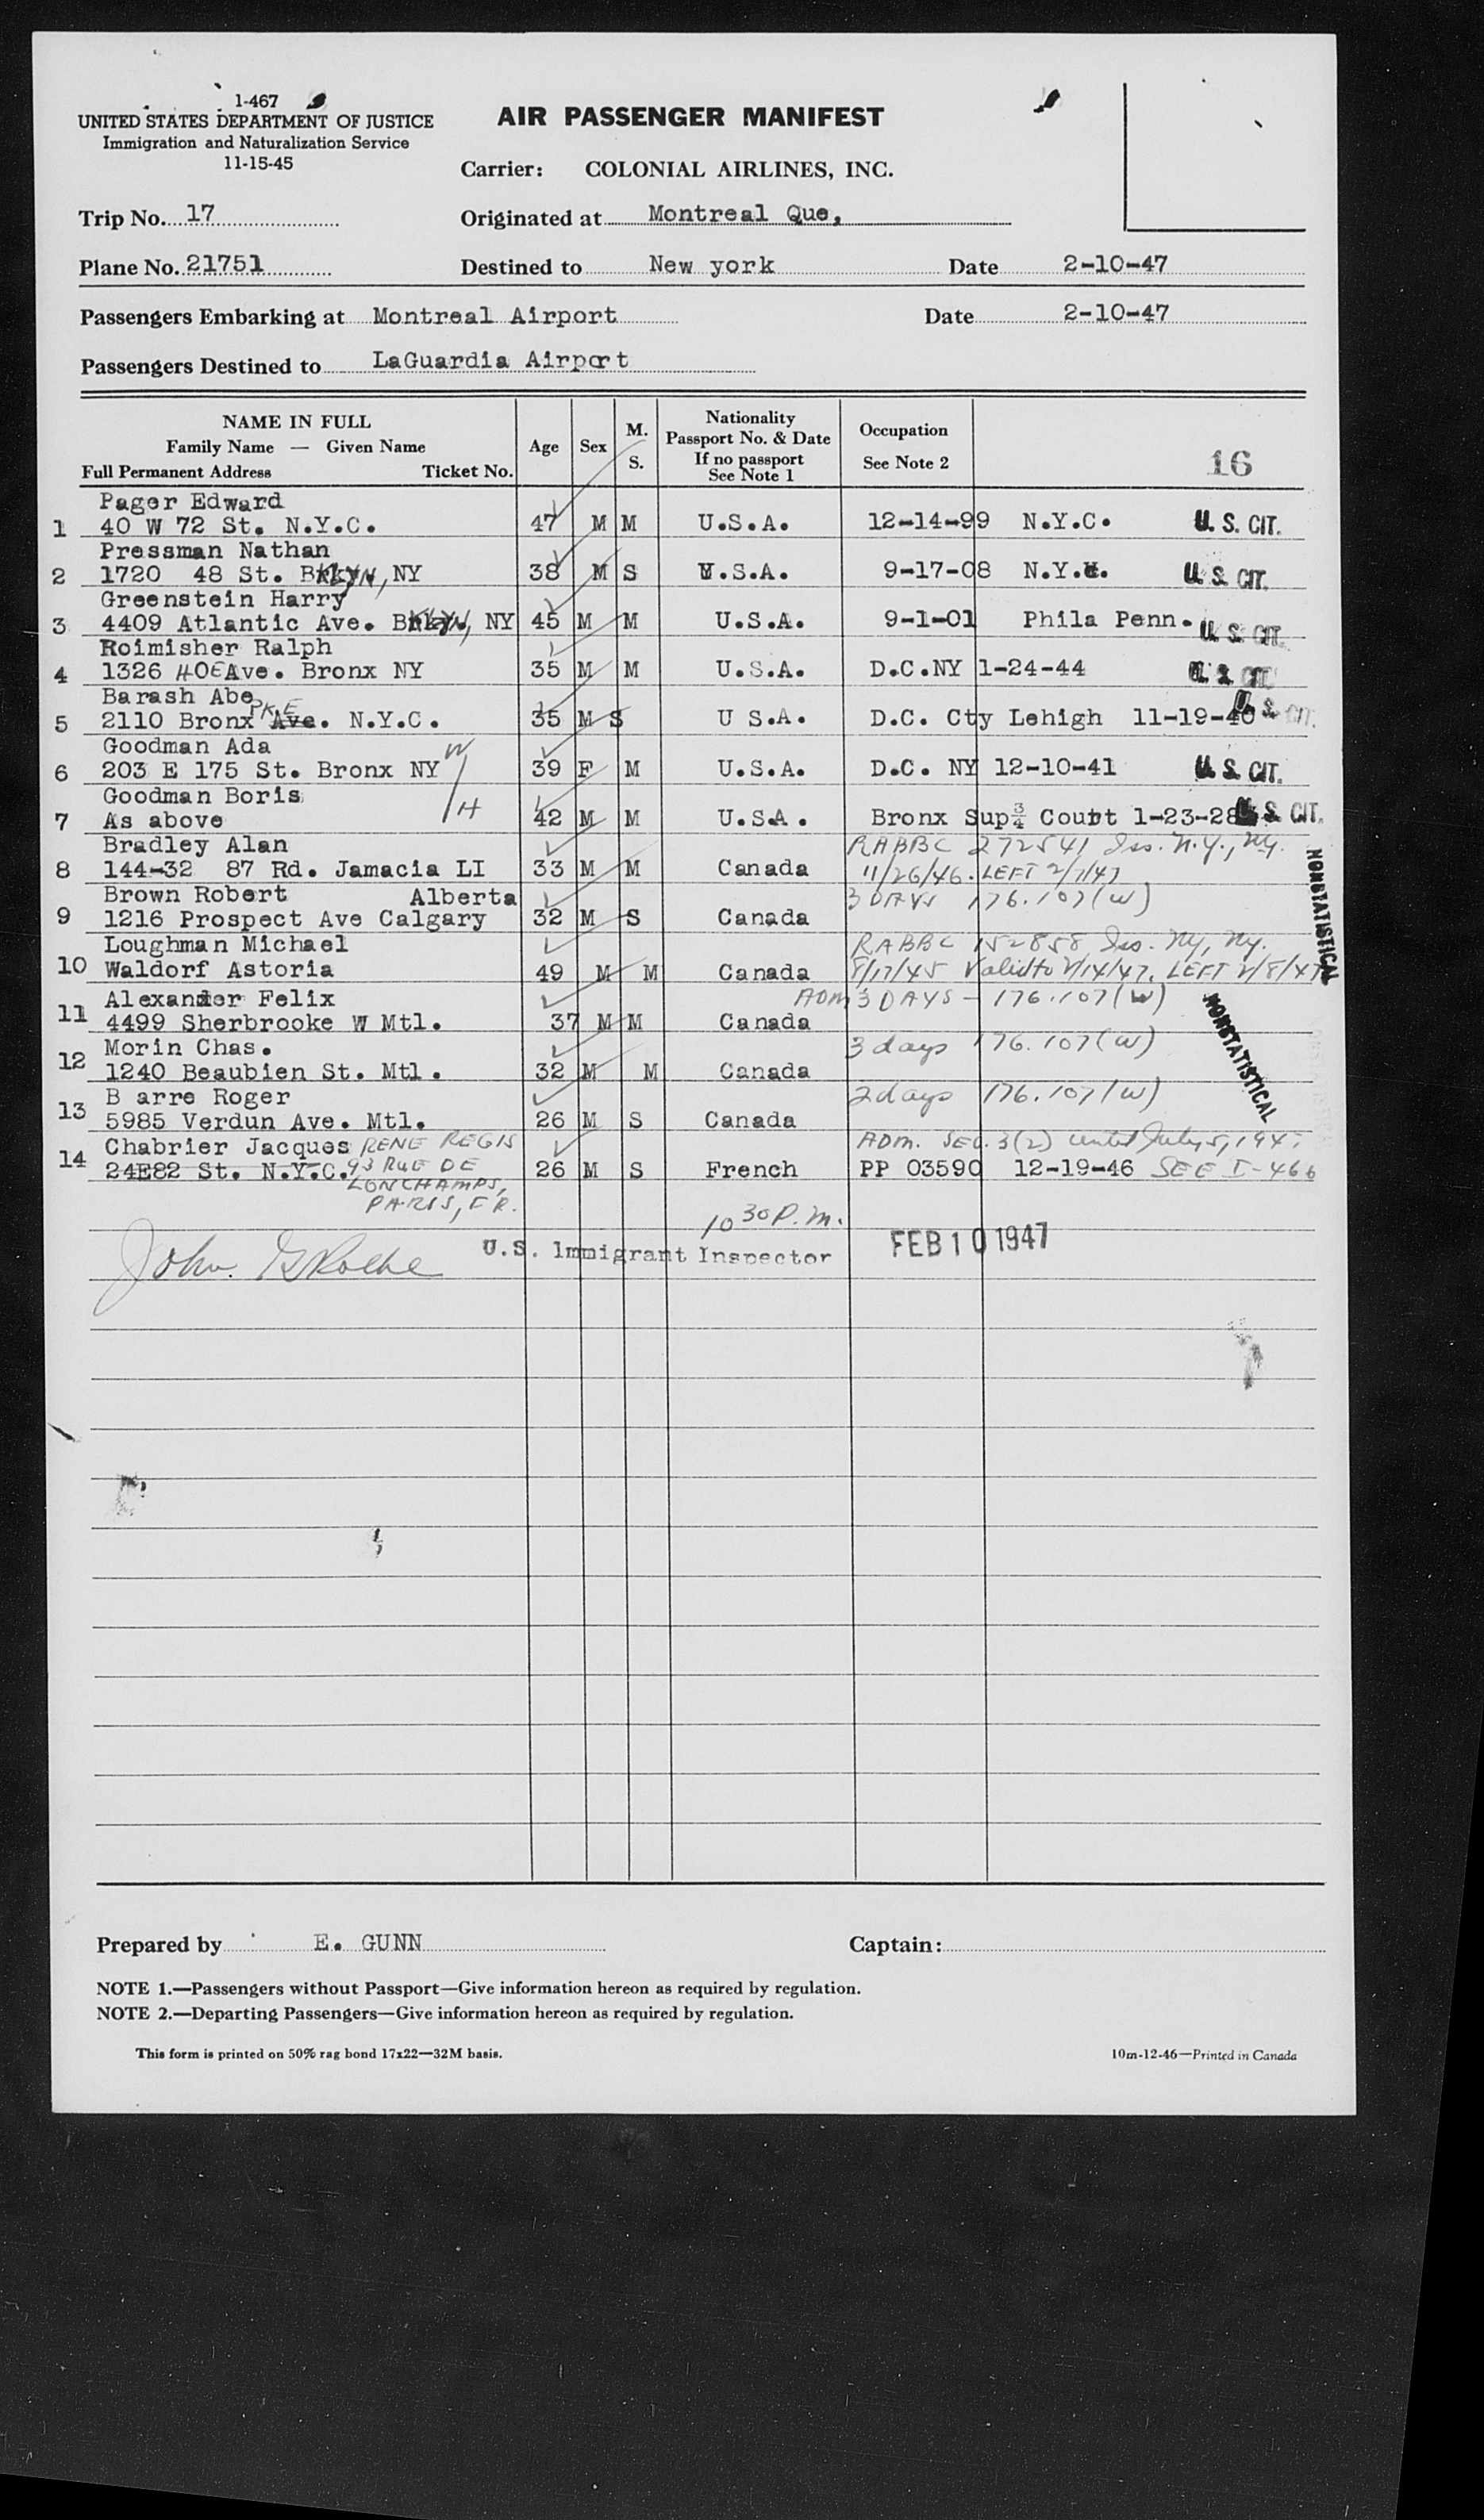 1-467
UNITED STATES DEPARTMENT OF JUSTICE
Immigration and Naturalization Service
11-15-45
AIR PASSENGER MANIFEST
Carrier: COLONIAL AIRLINES, INC.
Trip No. 17 Originated at Montreal Que,
Plane No. 21751 Destined to New york Date 2-10-47
Passengers Embarking at Montreal Airport Date 2-10-47
Passengers Destined to LaGuardia Airport
NAME IN FULL
Family Name — Given Name
Full Permanent Address Ticket No.
Age Sex M. S.
Nationality
Passport No. & Date
If no passport
See Note 1
Occupation
See Note 2
16
Pager Edward
1 40 W 72 St. N.Y.C. 47 M M U.S.A. 12-14-99 N.Y.C. U. S. CIT.
Pressman Nathan
2 1720 48 St. BKLYN, NY 38 M S U.S.A. 9-17-08 N.Y.C. U. S. CIT.
Greenstein Harry
3 4409 Atlantic Ave. Bklyn, NY 45 M M U.S.A. 9-1-01 Phila Penn. U. S. CIT.
Roimisher Ralph
4 1326 HOE Ave. Bronx NY 35 M M U.S.A. D.C.NY 1-24-44 U. S. CIT.
Barash Abe
5 2110 Bronx Ave. PKE N.Y.C. 35 M S U S.A. D.C. Cty Lehigh 11-19-40 U. S. CIT.
Goodman Ada W
6 203 E 175 St. Bronx NY 39 F M U.S.A. D.C. NY 12-10-41 U. S. CIT.
Goodman Boris H
7 As above 42 M M U.S.A. Bronx Sup¾ Court 1-23-28 U. S. CIT.
Bradley Alan RABBC 272541 Iss. N.Y., NY.
8 144-32 87 Rd. Jamacia LI 33 M M Canada 11/26/46. LEFT 2/7/47
Brown Robert Alberta 3 DAYS 176.107(W)
9 1216 Prospect Ave Calgary 32 M S Canada
NONSTATISTICAL
Loughman Michael RABBC 152858 Iss. NY, NY.
10 Waldorf Astoria 49 M M Canada 8/17/45 Valid to 2/14/47. LEFT 2/8/47
Alexander Felix ADM 3 DAYS - 176.107(W)
11 4499 Sherbrooke W Mtl. 37 M M Canada
Morin Chas. 3 days 176.107(W)
12 1240 Beaubien St. Mtl. 32 M M Canada
NONSTATISTICAL
B arre Roger 2 days 176.107(W)
13 5985 Verdun Ave. Mtl. 26 M S Canada
Chabrier Jacques RENE REGIS ADM. SEC. 3(2) until July 5, 194
14 24E82 St. N.Y.C. 93 RUE DE 26 M S French PP 03590 12-19-46 SEE I-466
LONCHAMPS,
PARIS, FR.
10 30 P.M.
John. U.S. Immigrant Inspector FEB 10 1947
Prepared by E. GUNN Captain:
NOTE 1.—Passengers without Passport—Give information hereon as required by regulation.
NOTE 2.—Departing Passengers—Give information hereon as required by regulation.
This form is printed on 50% rag bond 17x22—32M basis. 10m-12-46—Printed in Canada